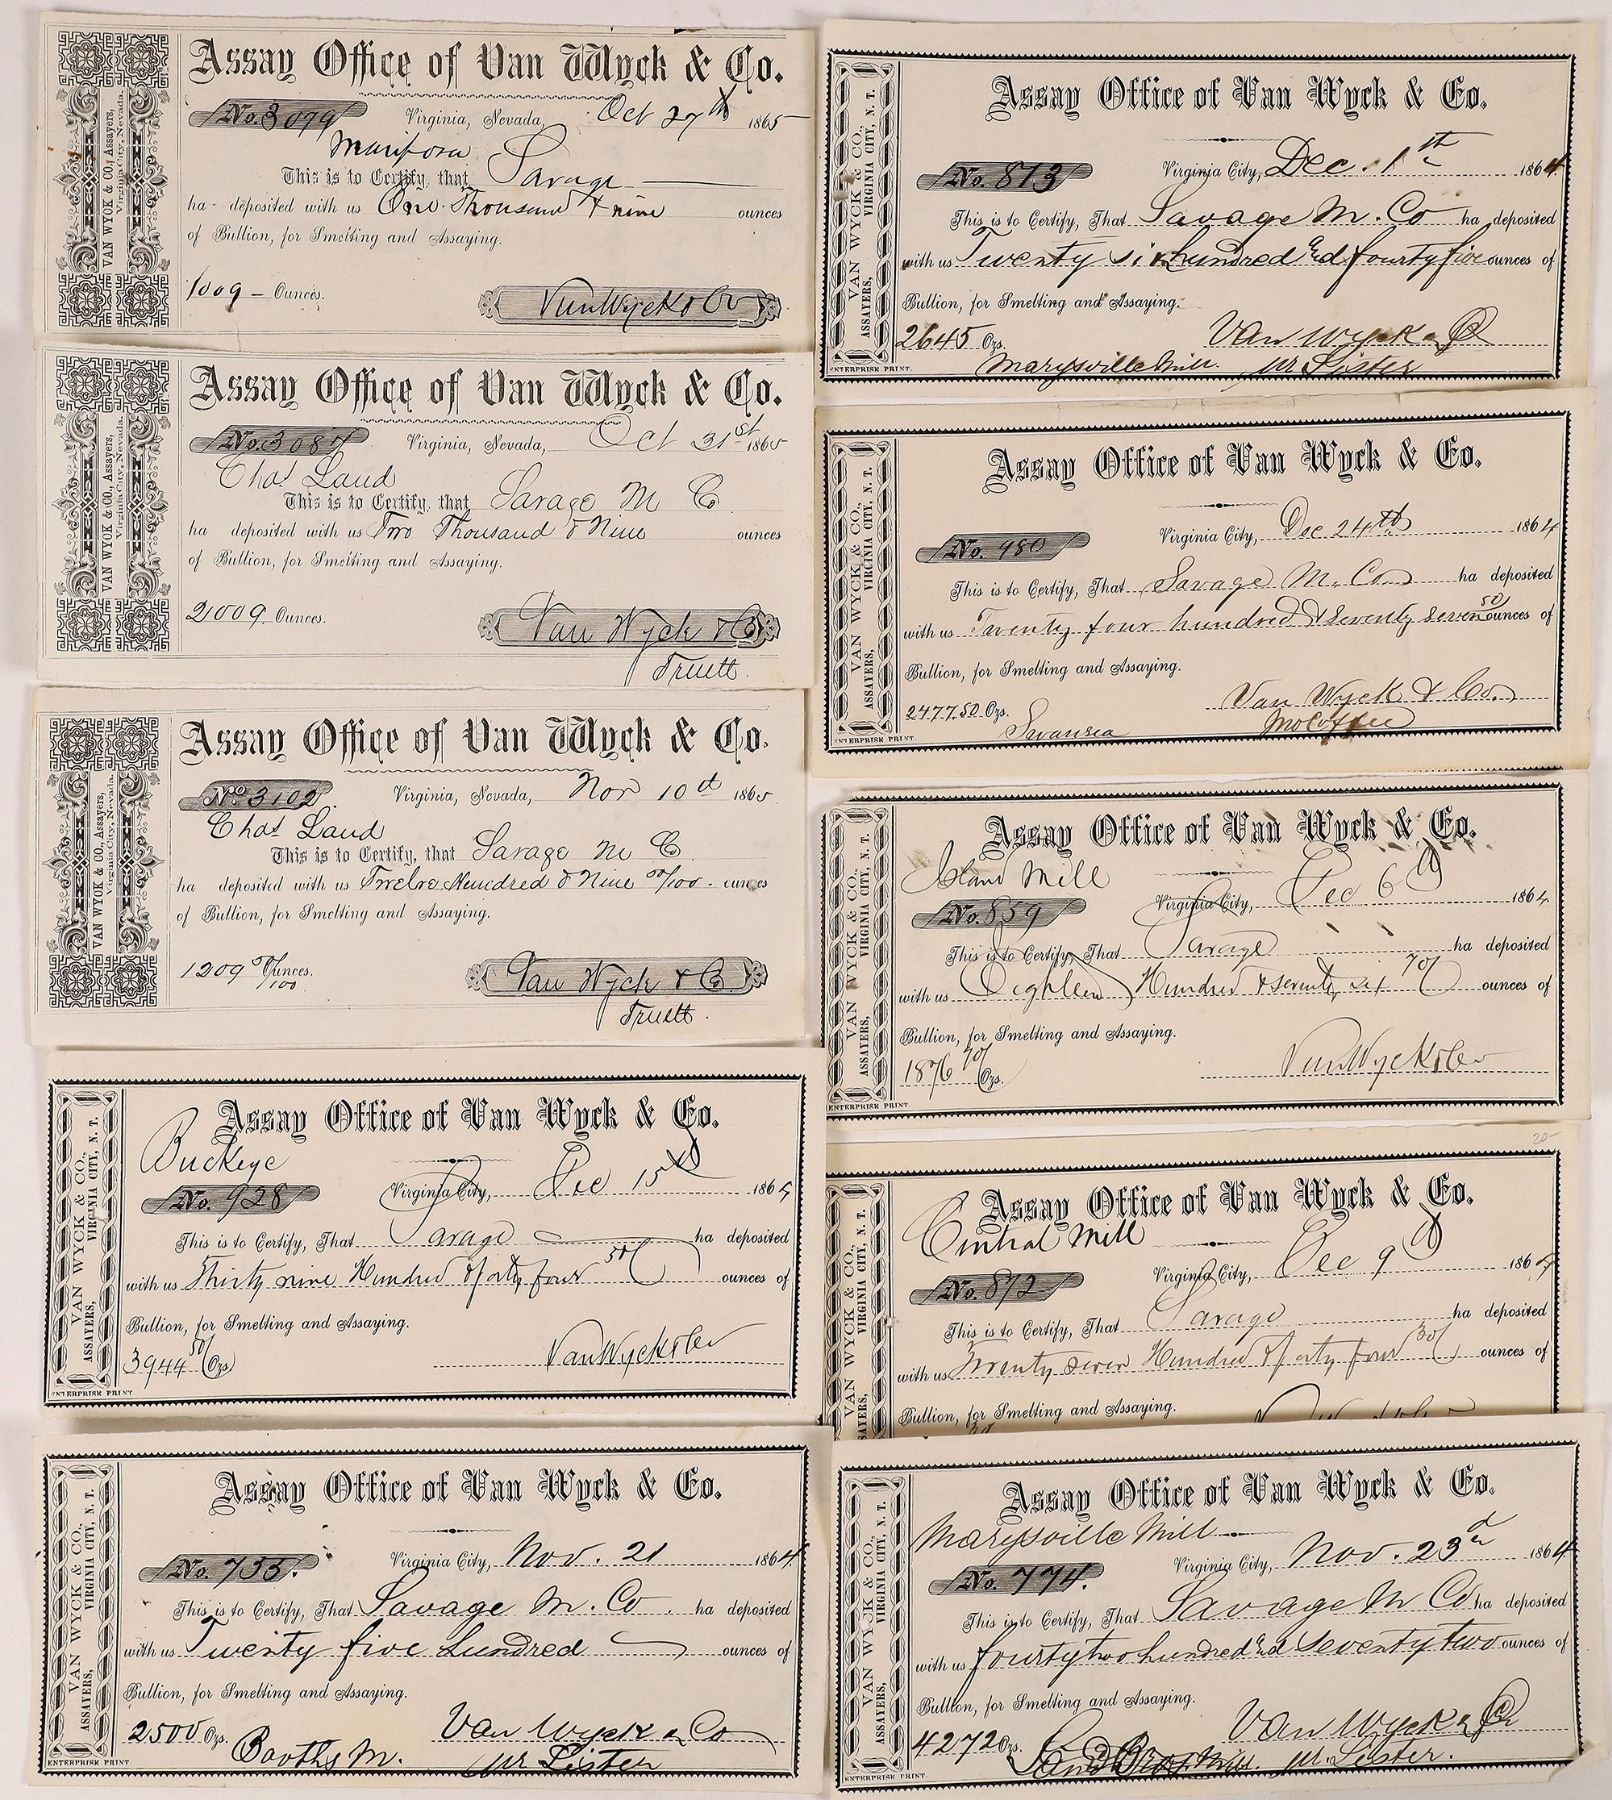 Assay Office of Van Wyck & Co.
No. 3079 Virginia, Nevada, Oct 27th 1865
Mariposa
This is to Certify, that Savage
ha deposited with us One Thousand & nine ounces
of Bullion, for Smelting and Assaying.
1009 - Ounces.
Van Wyck & Co
VAN WYCK & CO., Assayers,
Virginia City, Nevada.
Assay Office of Van Wyck & Co.
No. 3087 Virginia, Nevada, Oct 31st 1865
Chas Land
This is to Certify, that Savage M C
ha deposited with us Two Thousand & Nine ounces
of Bullion, for Smelting and Assaying.
2009 Ounces.
Van Wyck & Co
Truett.
VAN WYCK & CO., Assayers,
Virginia City, Nevada.
Assay Office of Van Wyck & Co.
No 3102 Virginia, Nevada, Nov 10th 1865
Chas Land
This is to Certify, that Savage M C
ha deposited with us Twelve Hundred & Nine 50/100 ounces
of Bullion, for Smelting and Assaying.
1209 50/100 Ounces.
Van Wyck & Co
Truett.
VAN WYCK & CO., Assayers,
Virginia City, Nevada.
Assay Office of Van Wyck & Co.
Buckeye
No. 928 Virginia City, Dec 15th 1864
This is to Certify, That Savage ha deposited
with us Thirty nine Hundred & forty four 50/ ounces of
Bullion, for Smelting and Assaying.
3944 50/ Ozs
Van Wyck & Co
VAN WYCK & CO.,
ASSAYERS, VIRGINIA CITY, N. T.
ENTERPRISE PRINT
Assay Office of Van Wyck & Co.
No. 755. Virginia City, Nov. 21 1864
This is to Certify, That Savage M. Co. ha deposited
with us Twenty five hundred ounces of
Bullion, for Smelting and Assaying.
2500 Ozs.
Van Wyck & Co
Booths M. pr Lister
VAN WYCK & CO.,
ASSAYERS, VIRGINIA CITY, N. T.
ENTERPRISE PRINT
Assay Office of Van Wyck & Co.
No. 813 Virginia City, Dec. 1th 1864
This is to Certify, That Savage M. Co ha deposited
with us Twenty six hundred and fourty five ounces of
Bullion, for Smelting and Assaying.
2645 Ozs. Van Wyck & Co
Marysville Mill. pr Lister
VAN WYCK & CO.,
ASSAYERS, VIRGINIA CITY, N. T.
ENTERPRISE PRINT.
Assay Office of Van Wyck & Co.
No. 980 Virginia City, Dec 24th 1864
This is to Certify, That Savage M. Co ha deposited
with us Twenty four hundred & seventy seven 50/ ounces of
Bullion, for Smelting and Assaying.
2477.50 Ozs. Van Wyck & Co.
Swansea
VAN WYCK & CO.,
ASSAYERS, VIRGINIA CITY, N. T.
ENTERPRISE PRINT
Assay Office of Van Wyck & Co.
Island Mill
No. 859 Virginia City, Dec 6th 1864
This is to Certify, That Savage ha deposited
with us Eighteen Hundred & seventy six 70/ ounces of
Bullion, for Smelting and Assaying.
1876 70/ Ozs.
Van Wyck & Co
VAN WYCK & CO.,
ASSAYERS, VIRGINIA CITY, N. T.
ENTERPRISE PRINT
20-
Assay Office of Van Wyck & Co.
Central Mill
No. 872 Virginia City, Dec 9th 1864
This is to Certify, That Savage ha deposited
with us Twenty seven Hundred & forty four 30/ ounces of
Bullion, for Smelting and Assaying.
VAN WYCK & CO.,
VIRGINIA CITY, N. T.
Assay Office of Van Wyck & Co.
Marysville Mill
No. 774. Virginia City, Nov. 23rd 1864
This is to Certify, That Savage M Co ha deposited
with us fourty two hundred and seventy two ounces of
Bullion, for Smelting and Assaying.
4272 Ozs. Van Wyck & Co
pr. Lister.
VAN WYCK & CO.,
ASSAYERS, VIRGINIA CITY, N. T.
ENTERPRISE PRINT.